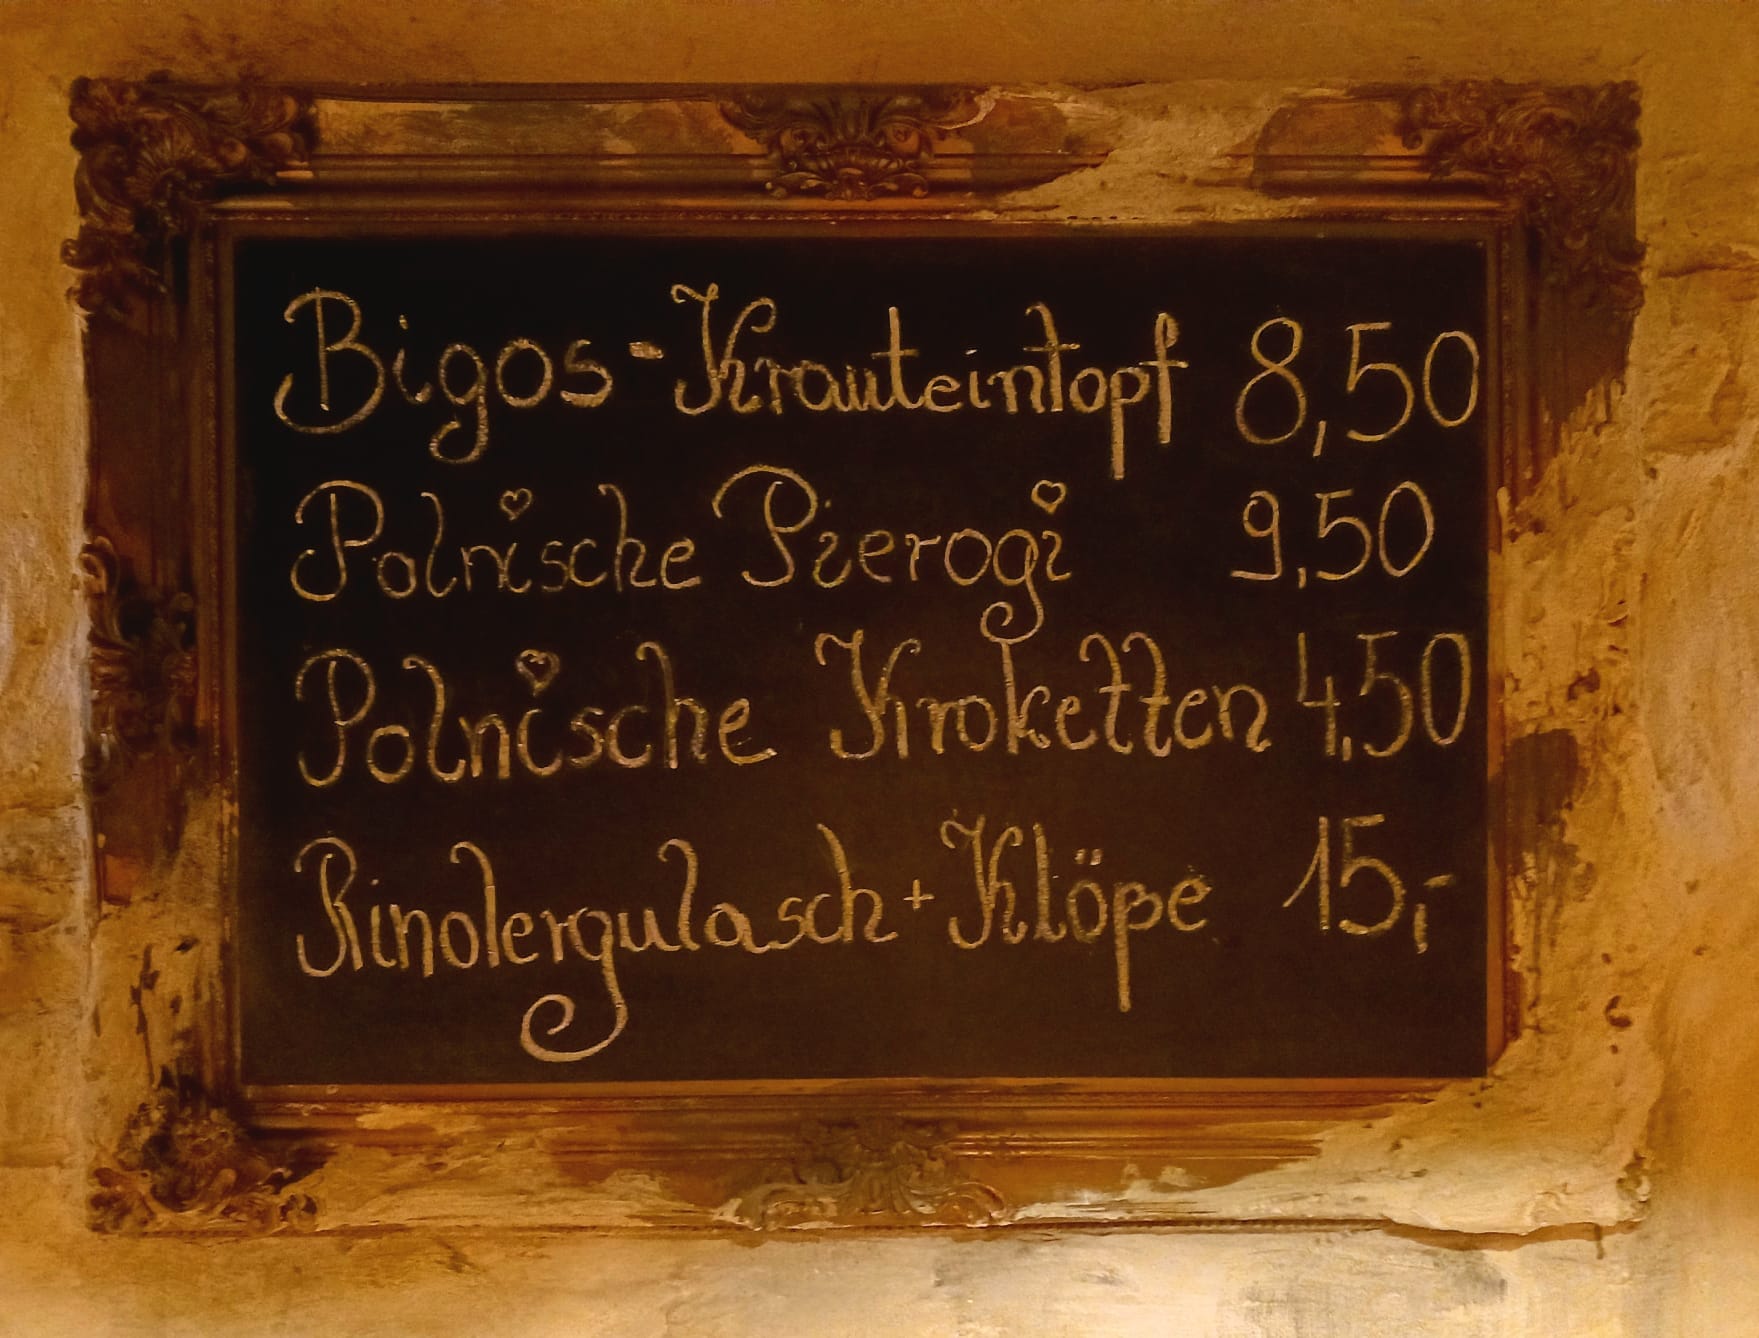 Bigos-Krauteintopf 8,50
Polnische Pierogi 9,50
Polnische Kroketten 4,50
Rindergulasch + Klöße 15,-